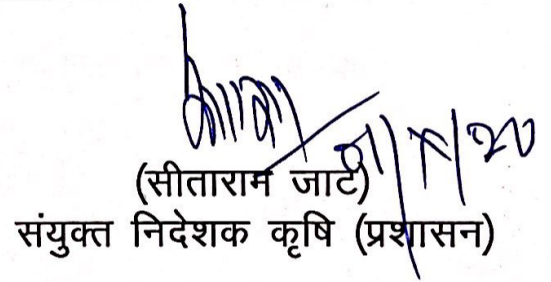 (सीताराम जाट)
संयुक्त निदेशक कृषि (प्रशासन)